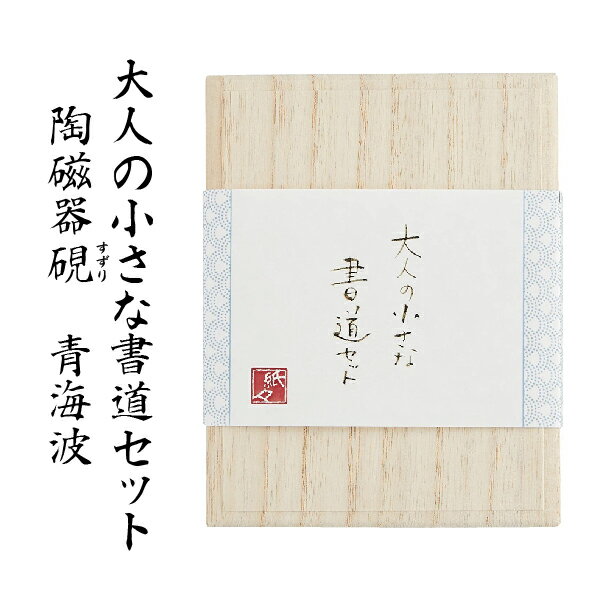 大人の小さな書道セット
陶磁器硯 青海波
すずり
大人の小さな
書道セット
紙々